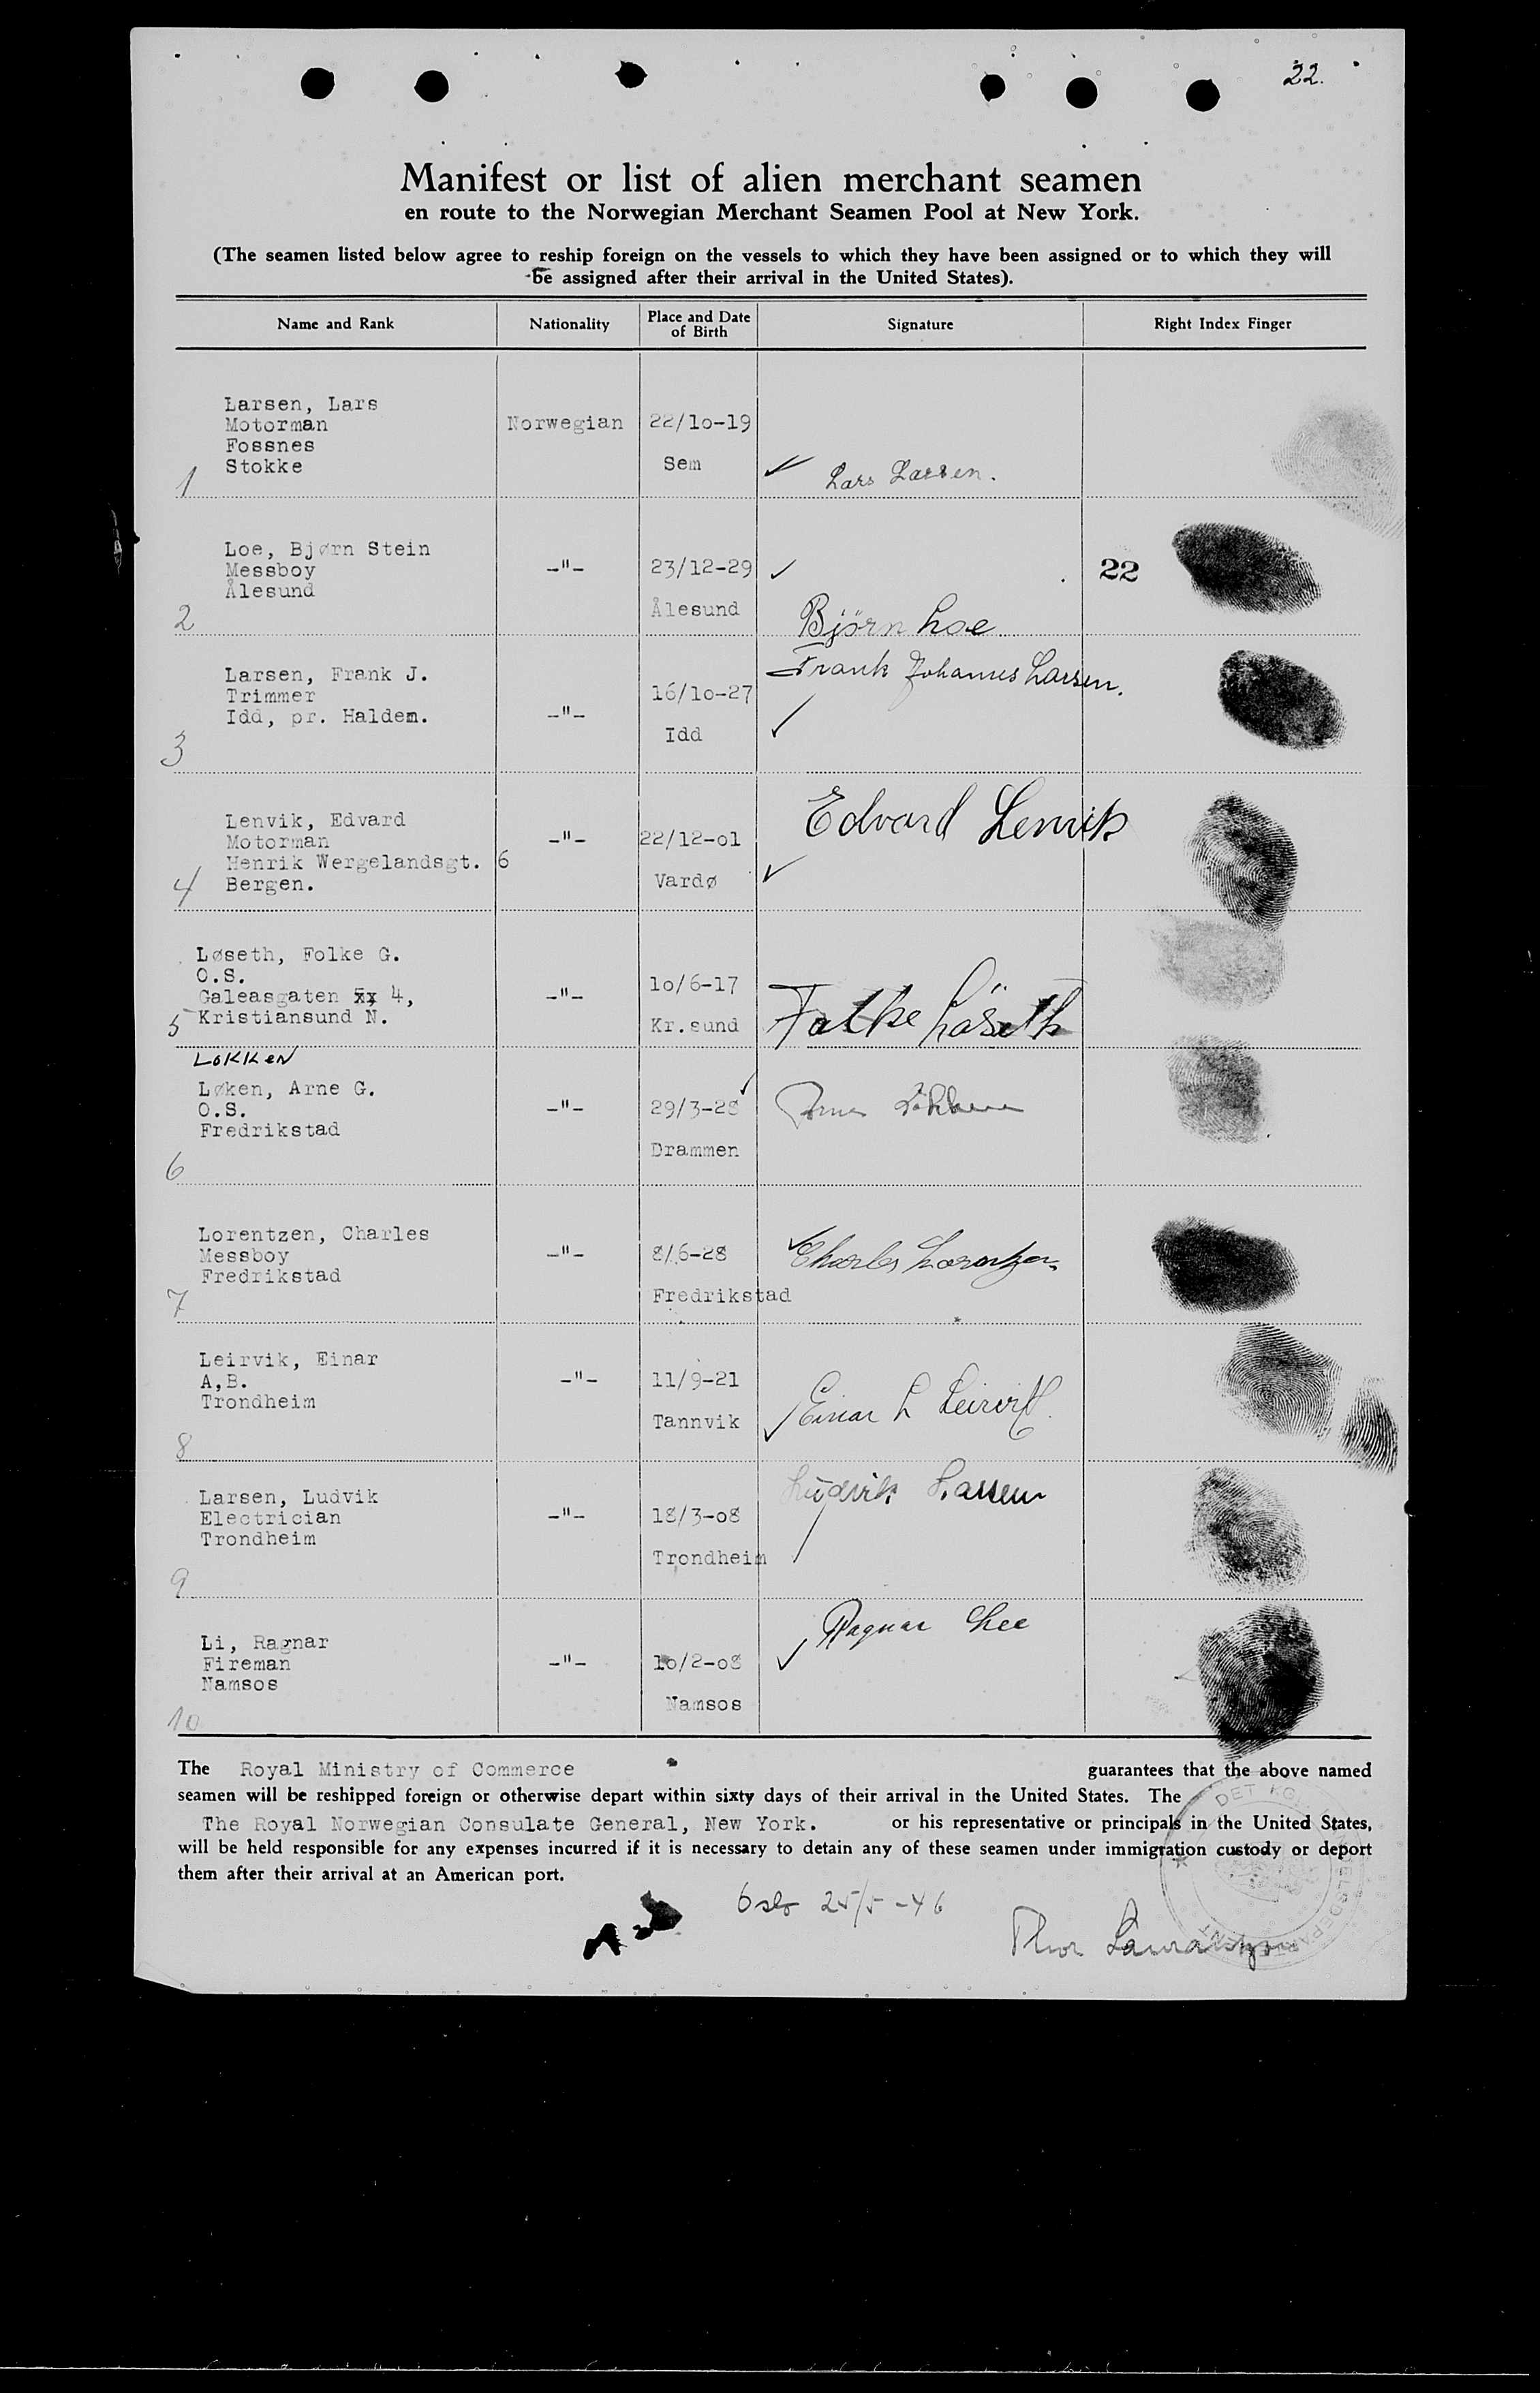 22.
Manifest or list of alien merchant seamen
en route to the Norwegian Merchant Seamen Pool at New York.
(The seamen listed below agree to reship foreign on the vessels to which they have been assigned or to which they will
be assigned after their arrival in the United States).
Name and Rank Nationality Place and Date of Birth Signature Right Index Finger
Larsen, Lars
Motorman Norwegian 22/10-19
Fossnes
Stokke Sem Lars Larsen.
1
Loe, Bjørn Stein
Messboy -"- 23/12-29 22
Ålesund
Ålesund
2 Björn Loe
Larsen, Frank J. Frank Johannes Larsen.
Trimmer 16/10-27
Idd, pr. Haldem. -"-
Idd
3
Lenvik, Edvard Edvard Lenvik
Motorman -"- 22/12-01
Henrik Wergelandsgt. 6
4 Bergen. Vardø
Løseth, Folke G.
O.S. 10/6-17
Galeasgaten xx 4, -"-
5 Kristiansund N. Kr.sund Folke Löseth
LØKKEN
Løken, Arne G.
O.S. -"- 29/3-28 Arne Lökken
Fredrikstad
Drammen
6
Lorentzen, Charles
Messboy -"- 8/6-28 Charles Lorentzen
Fredrikstad
Fredrikstad
7
Leirvik, Einar
A,B. -"- 11/9-21
Trondheim
Tannvik Einar L Leirvik
8
Larsen, Ludvik Ludvik Larsen
Electrician -"- 18/3-08
Trondheim
Trondheim
9
Ragnar Lee
Li, Ragnar
Fireman -"- 10/2-08
Namsos
Namsos
10
The Royal Ministry of Commerce guarantees that the above named
seamen will be reshipped foreign or otherwise depart within sixty days of their arrival in the United States. The
The Royal Norwegian Consulate General, New York. or his representative or principals in the United States,
will be held responsible for any expenses incurred if it is necessary to detain any of these seamen under immigration custody or deport
them after their arrival at an American port.
Oslo 25/5-46
Thor
DET KGL. HANDELSDEPARTEMENT